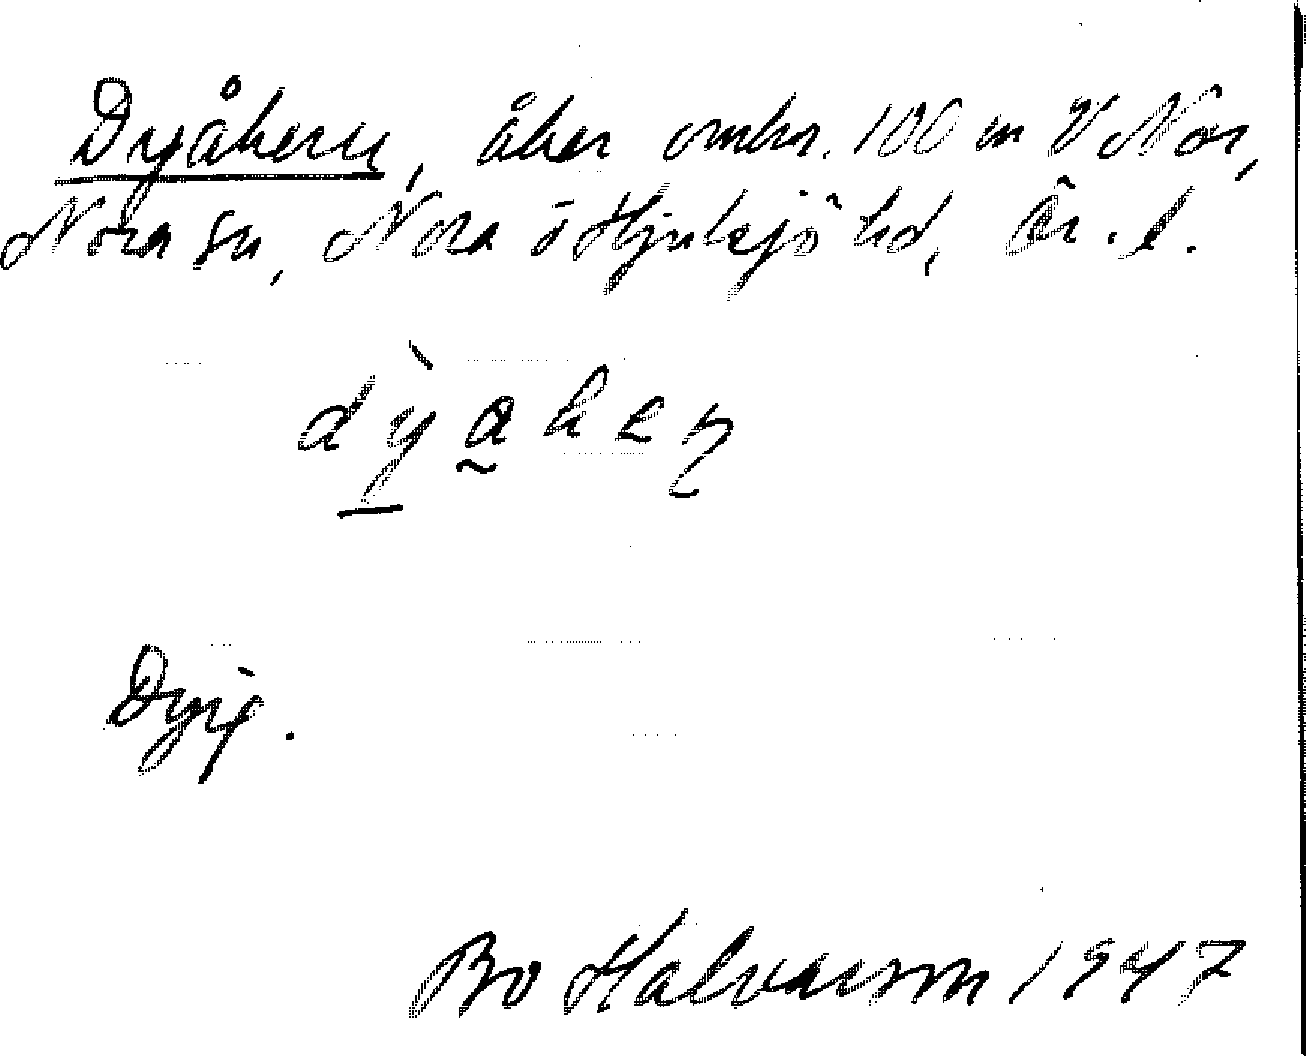 Dyåkern, åker omkr. 100 m V Nor,
Nora sn, Nora o Hjulsjö hd, Ör. l.
dỳạkeɳ
Dyig.
Bo Halvarson 1947